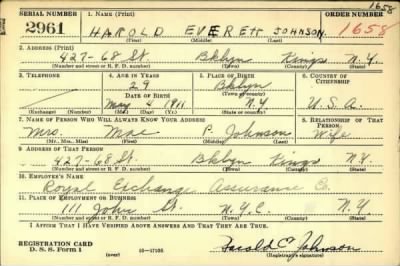 1658
SERIAL NUMBER 1. NAME (Print) ORDER NUMBER
2961 HAROLD EVERETT JOHNSON 1658
(First) (Middle) (Last)
2. ADDRESS (Print)
427-68 St. Bklyn Kings N.Y.
(Number and street or R. F. D. number) (Town) (County) (State)
3. TELEPHONE 4. AGE IN YEARS 5. PLACE OF BIRTH 6. COUNTRY OF CITIZENSHIP
29 Bklyn
DATE OF BIRTH (Town or county)
May 4 1911 N.Y. U.S.A.
(Exchange) (Number) (Mo.) (Day) (Yr.) (State or country)
7. NAME OF PERSON WHO WILL ALWAYS KNOW YOUR ADDRESS 8. RELATIONSHIP OF THAT PERSON
Mrs. Mae P. Johnson Wife
(Mr., Mrs., Miss) (First) (Middle) (Last)
9. ADDRESS OF THAT PERSON
427-68 St. Bklyn Kings N.Y.
(Number and street or R. F. D. number) (Town) (County) (State)
10. EMPLOYER'S NAME
Royal Exchange Assurance Co.
11. PLACE OF EMPLOYMENT OR BUSINESS
111 John St. N.Y.C. N.Y.
(Number and street or R. F. D. number) (Town) (County) (State)
I AFFIRM THAT I HAVE VERIFIED ABOVE ANSWERS AND THAT THEY ARE TRUE.
REGISTRATION CARD
D. S. S. Form 1 (over) Harold E. Johnson
(Registrant's signature)